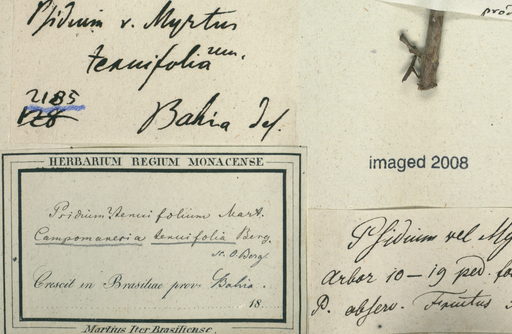 Psidium v. Myrtus
tenuifolia
2185
128
Bahia
imaged 2008
HERBARIUM REGIUM MONACENSE
Psidium tenuifolium Mart.
Campomanesia tenuifolia Berg.
O. Berg.
Crescit in Brasiliae prov. Bahia.
18
Martius Iter Brasiliense.
Psidium vel My
Arbor 10-19 ped.
observ. Fructus